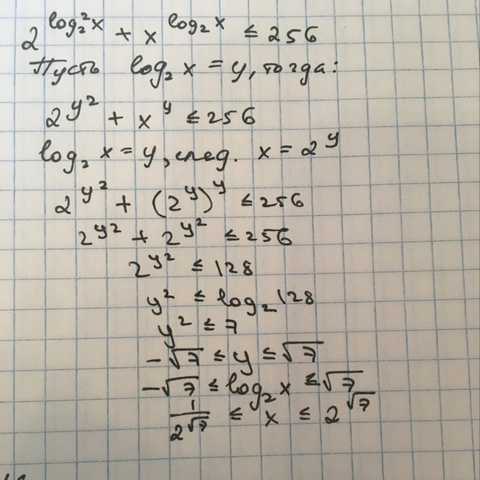 2^{log₂²x} + x^{log₂x} ≤ 256
Пусть log₂ x = y, тогда:
2^{y²} + x^y ≤ 256
log₂ x = y, след. x = 2^y
2^{y²} + (2^y)^y ≤ 256
2^{y²} + 2^{y²} ≤ 256
2^{y²} ≤ 128
y² ≤ log₂ 128
y² ≤ 7
-√7 ≤ y ≤ √7
-√7 ≤ log₂ x ≤ √7
1/2^{√7} ≤ x ≤ 2^{√7}